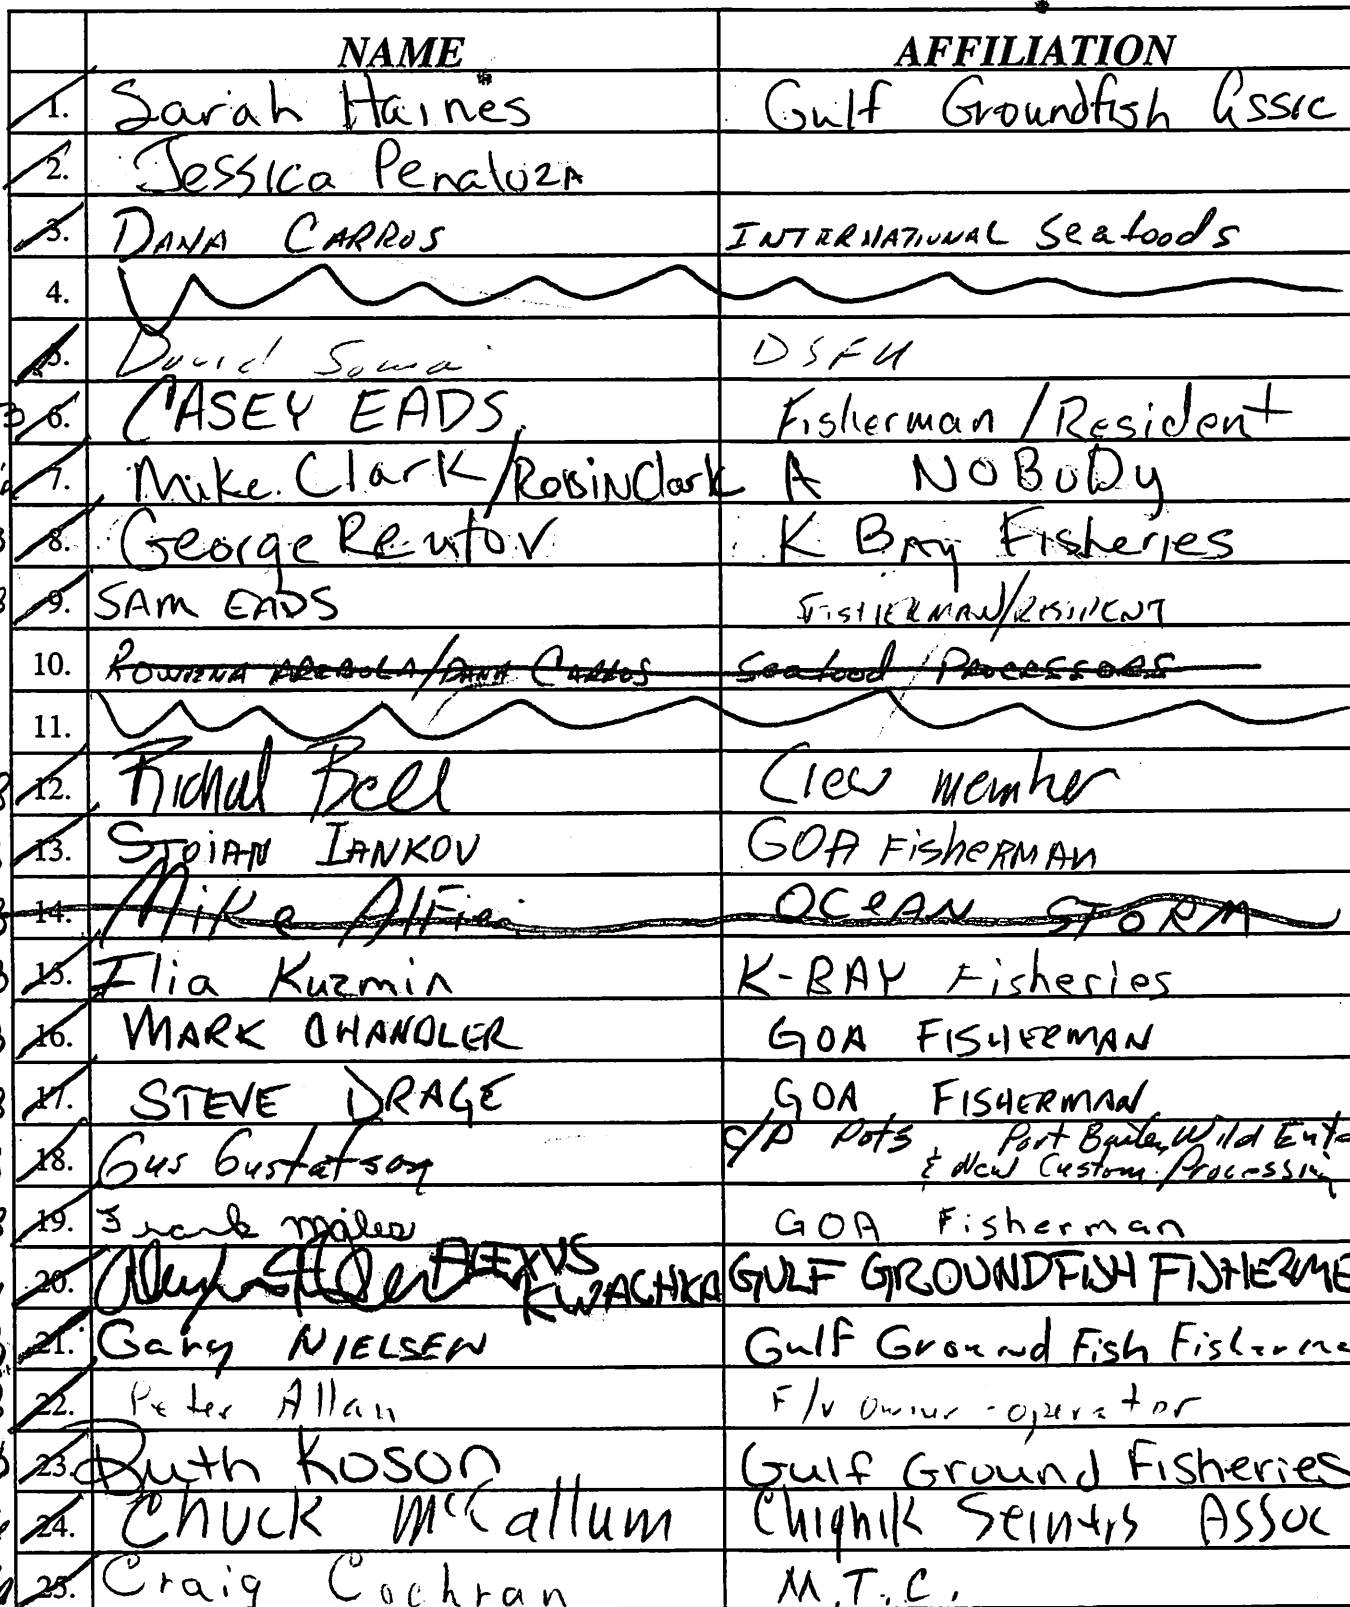 NAME AFFILIATION
1. Sarah Haines Gulf Groundfish Assic
2. Jessica Penaloza
3. DANA CARROS INTERNATIONAL Seafoods
4.
5. David
6. CASEY EADS Fisherman / Resident
7. Mike Clark / ROBIN Clark A NOBODy
8. George Reutov K BAy Fisheries
9. SAM EADS FISHERMAN/RESIDENT
10. ROWENA AREBOLA/DANA CARROS Seafood / PROCESSORS
11.
12. Richal Bell Crew member
13. STOIAN IANKOV GOA FisheRMAN
14. Mike OCeAN STORM
15. Elia Kuzmin K-BAY Fisheries
16. MARK CHANDLER GOA FISHERMAN
17. STEVE DRAGE GOA FISHERMAN
18. Gus Gustafson C/P Pots Port Bailey Wild Ent
& New Custom Processing
19. Frank Miles GOA Fisherman
20. ALEXUS KWACHKA GULF GROUNDFISH FISHERME
21. Gary NIELSEN Gulf Ground Fish Fisherme
22. Peter Allan F/V Owner-operator
23. Ruth Koson Gulf Ground Fisheries
24. Chuck McCallum Chignik Seiners Assoc
25. Craig Cochran M.T.C.